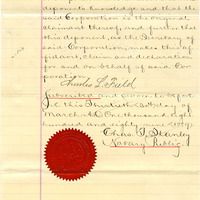 deponent's knowledge and that the
said Corporation is the original
claimant thereof, and further that
this deponent, as the Secretary of
said Corporation, makes this af-
fidavit, claim and declaration
for and on behalf of said Cor-
poration.
Charles L. Field
Subscribed and sworn to before
me this Twentieth day of
March A.D. One thousand eight
hundred and eighty nine
Chas. T. Stanley
Notary Public